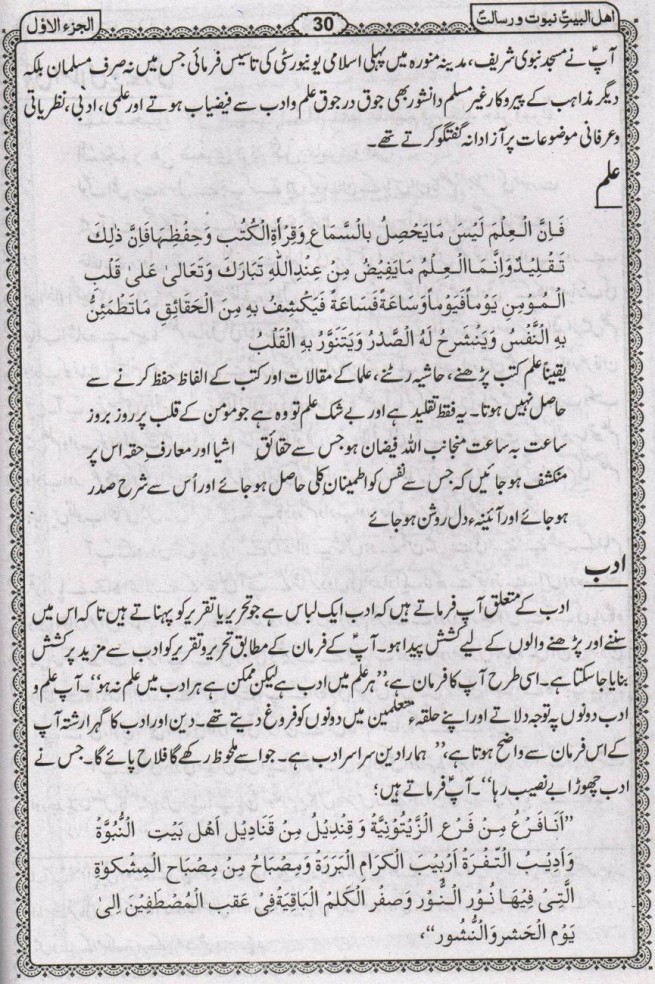 اھل البیتِؑ نبوت و رسالت
30
الجزء الاوّل
آپؑ نے مسجد نبوی شریف، مدینہ منورہ میں پہلی اسلامی یونیورسٹی کی تاسیس فرمائی جس میں نہ صرف مسلمان بلکہ
دیگر مذاہب کے پیروکار غیر مسلم دانشور بھی جوق در جوق علم و ادب سے فیضیاب ہوتے اور علمی، ادبی، نظریاتی
و عرفانی موضوعات پر آزادانہ گفتگو کرتے تھے۔
علم
فَاِنَّ الْعِلْمَ لَیْسَ مَایَحْصِلُ بِالسَّمَاعِ وَقِرْأَۃِ الْکُتُبِ وَحِفْظِہَا فَاِنَّ ذٰلِكَ
تَقْلِیْدٌ وَاِنَّمَا الْعِلْمُ مَایَفِیْضُ مِنْ عِنْدِاللّٰہِ تَبَارَكَ وَتَعَالٰی عَلٰی قَلْبِ
الْمُوْمِنِ یَوْماً فَیَوْماً وَسَاعَۃً فَسَاعَۃً فَیَکْشِفُ بِہٖ مِنَ الْحَقَائِقِ مَاتَطْمَئِنُّ
بِہِ النَّفْسُ وَیَنْشَرِحُ لَہُ الصَّدْرُ وَیَتَنَوَّرُ بِہِ الْقَلْبُ
یقیناً علم کتب پڑھنے، حاشیہ رٹنے، علما کے مقالات اور کتب کے الفاظ حفظ کرنے سے
حاصل نہیں ہوتا۔ یہ فقط تقلید ہے اور بے شک علم تو وہ ہے جو مومن کے قلب پر روز بروز
ساعت بہ ساعت منجانب اللہ فیضان ہو جس سے حقائق اشیا اور معارف حقہ اس پر
منکشف ہو جائیں کہ جس سے نفس کو اطمینان کلی حاصل ہو جائے اور اُس سے شرح صدر
ہو جائے اور آئینۂ دل روشن ہو جائے
ادب
ادب کے متعلق آپؑ فرماتے ہیں کہ ادب ایک لباس ہے جو تحریر یا تقریر کو پہناتے ہیں تا کہ اس میں
سننے اور پڑھنے والوں کے لیے کشش پیدا ہو۔ آپؑ کے فرمان کے مطابق تحریر و تقریر کو ادب سے مزید پر کشش
بنایا جا سکتا ہے۔ اسی طرح آپؑ کا فرمان ہے، ’’ہر علم میں ادب ہے لیکن ممکن ہے ہر ادب میں علم نہ ہو‘‘۔ آپؑ علم و
ادب دونوں پہ توجہ دلاتے اور اپنے حلقۂ متعلمین میں دونوں کو فروغ دیتے تھے۔ دین اور ادب کا گہرا رشتہ آپؑ
کے اس فرمان سے واضح ہوتا ہے، ’’ہمارا دین سراسر ادب ہے۔ جو اسے ملحوظ رکھے گا فلاح پائے گا۔ جس نے
ادب چھوڑا بے نصیب رہا‘‘۔ آپؑ فرماتے ہیں؛
’’اَنَا فَرْعٌ مِنْ فَرْعِ الزَّیْتُوْنِیَّةِ وَ قِنْدِیْلٌ مِنْ قَنَادِیْلِ اَھْلِ بَیْتِ النُّبُوَّۃِ
وَاَدِیْبُ السَّفَرَۃِ اَرْبِیْبُ الْکِرَامِ الْبَرَرَۃِ وَمِصْبَاحٌ مِنْ مِصْبَاحِ الْمِشْکٰوۃِ
الَّتِیْ فِیْهَا نُوْرُ النُّوْرِ وَصَفْرُ الْکَلِمِ الْبَاقِیَةِ فِیْ عَقِبِ الْمُصْطَفَیْنَ اِلٰی
یَوْمِ الْحَشْرِ وَالنُّشُوْرِ‘‘،